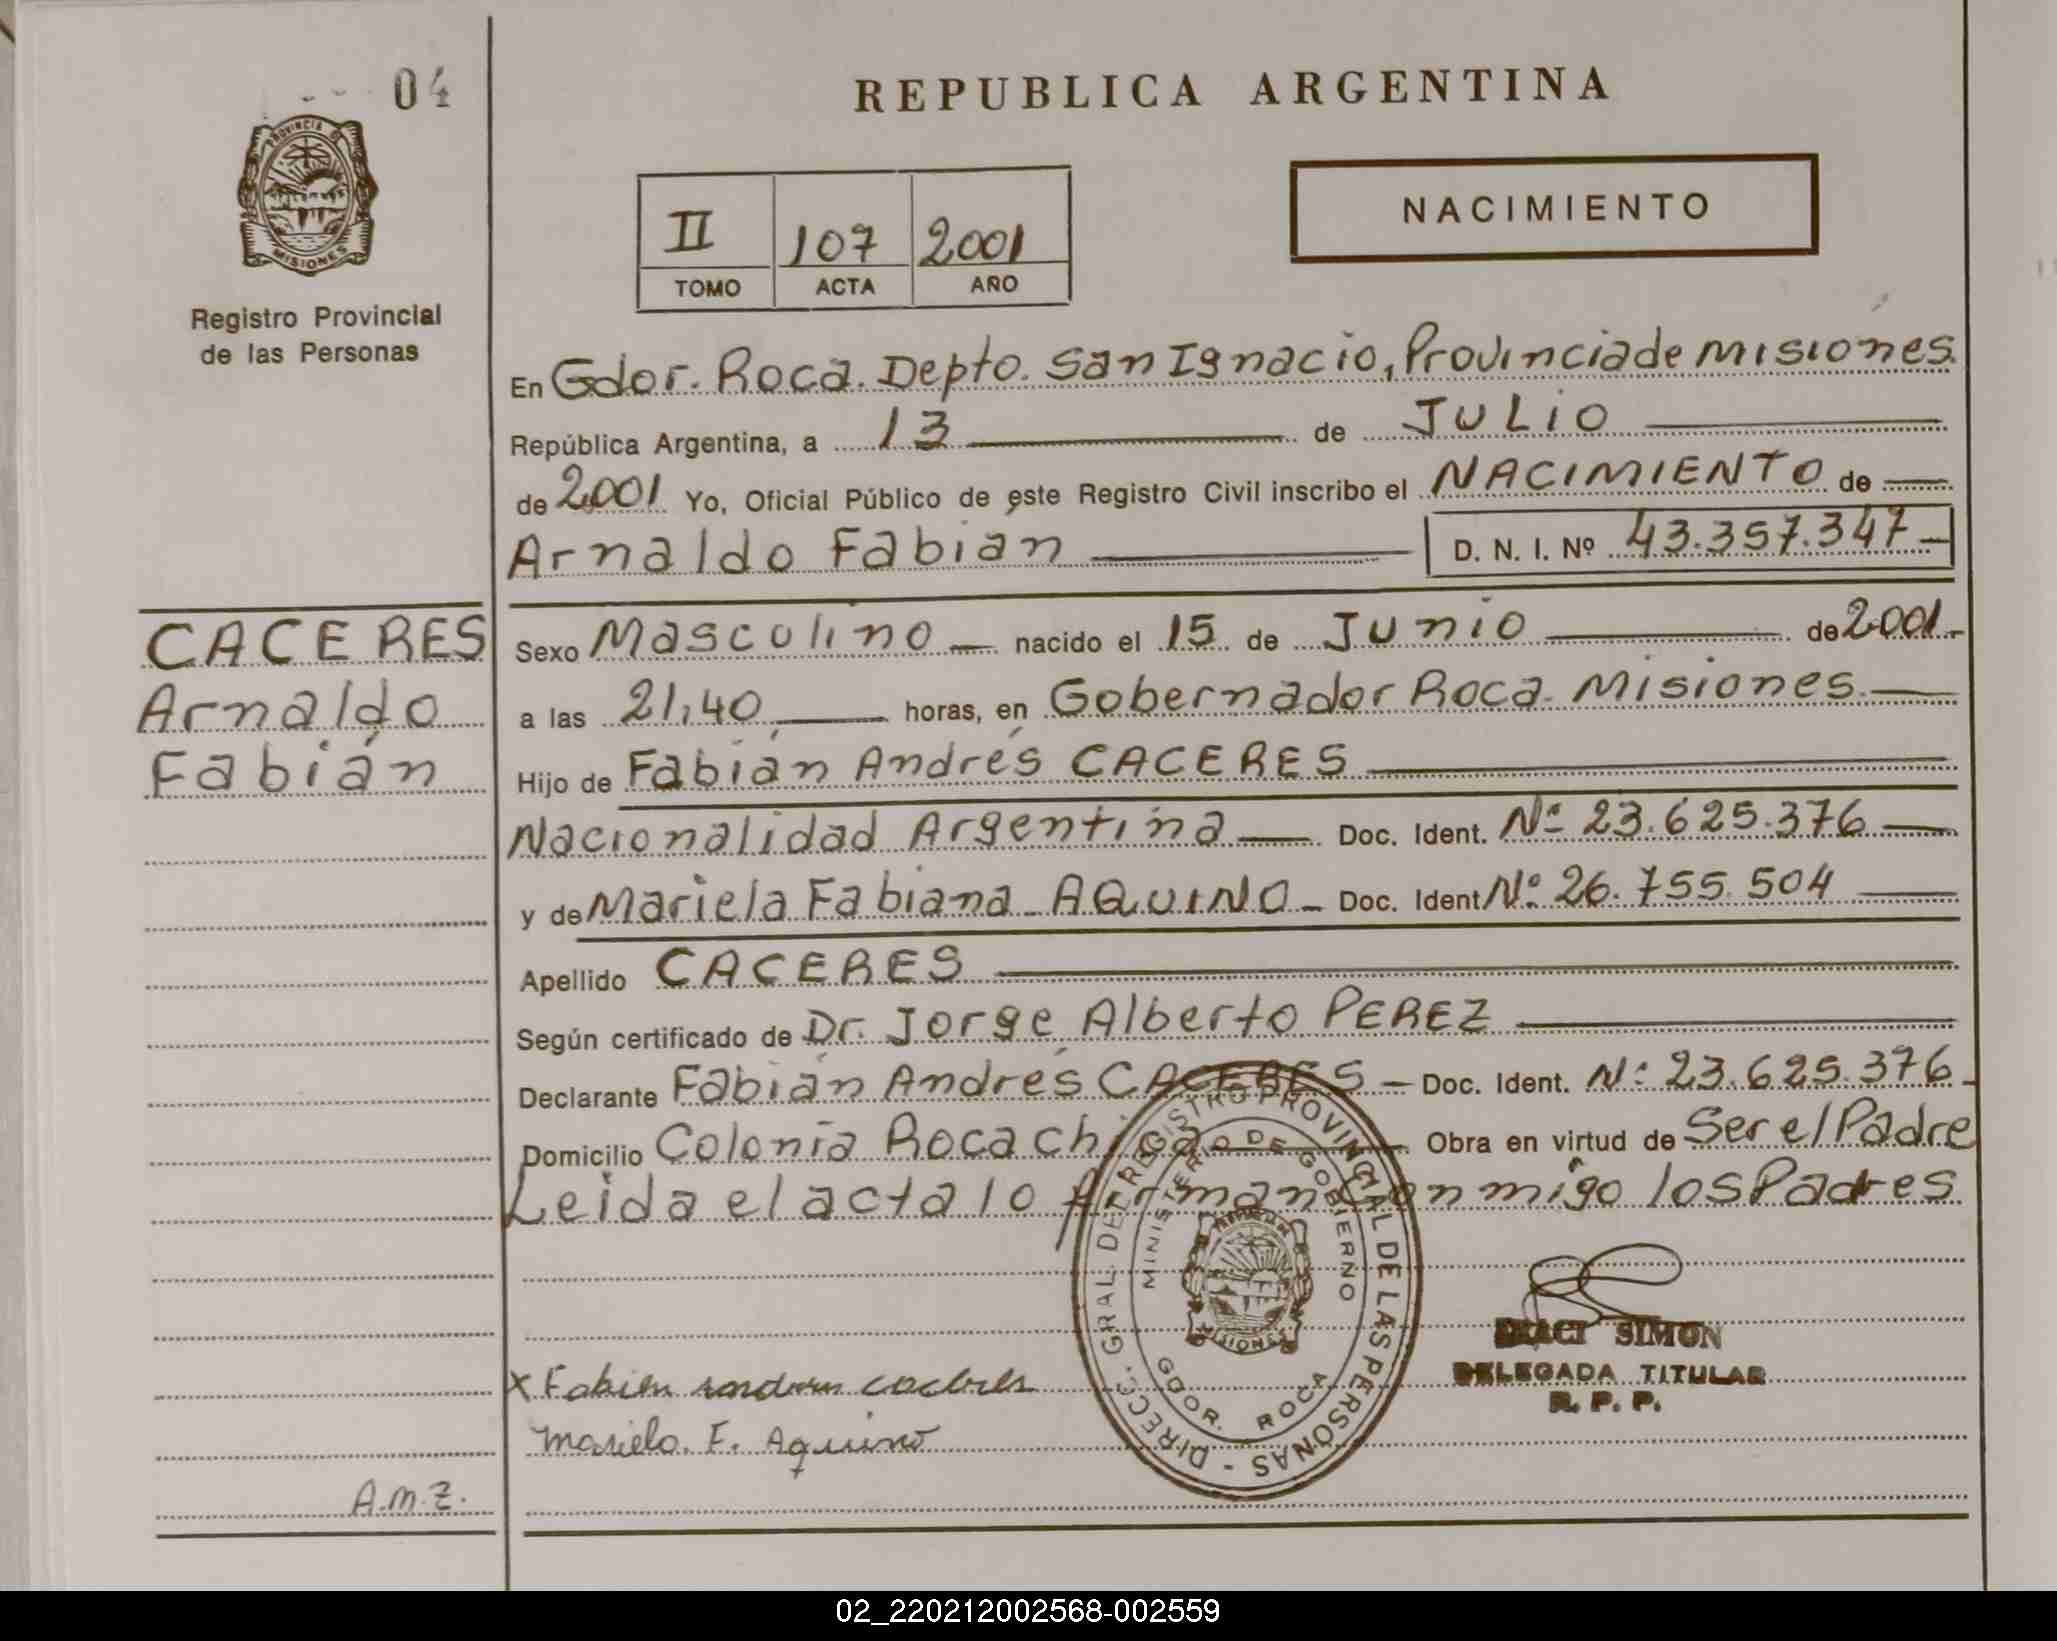 04
REPUBLICA ARGENTINA
PROVINCIA DE
MISIONES
Registro Provincial
de las Personas
II 107 2001
TOMO ACTA AÑO
NACIMIENTO
En Gdor. Roca. Depto. San Ignacio, Provincia de Misiones.
República Argentina, a 13 de JULIO
de 2001 Yo, Oficial Público de este Registro Civil inscribo el NACIMIENTO de
Arnaldo Fabian D. N. I. Nº 43.357.347
CACERES
Arnaldo
Fabián
Sexo Masculino nacido el 15 de Junio de 2001.
a las 21,40 horas, en Gobernador Roca. Misiones.
Hijo de Fabián Andrés CACERES
Nacionalidad Argentina Doc. Ident. Nº 23.625.376
y de Mariela Fabiana AQUINO Doc. Ident Nº 26.755.504
Apellido CACERES
Según certificado de Dr. Jorge Alberto PEREZ
Declarante Fabián Andrés CACERES Doc. Ident. Nº 23.625.376
Domicilio Colonia Roca chica Obra en virtud de Ser el Padre
Leida el acta lo firman conmigo los Padres
DIRECC. GRAL DEL REGISTRO PROVINCIAL DE LAS PERSONAS -
MINISTERIO DE GOBIERNO
MISIONES
GDOR. ROCA
SIMON
DELEGADA TITULAR
R. P. P.
X Fabian caceres
Mariela. F. Aquino
A.M.Z.
02_220212002568-002559